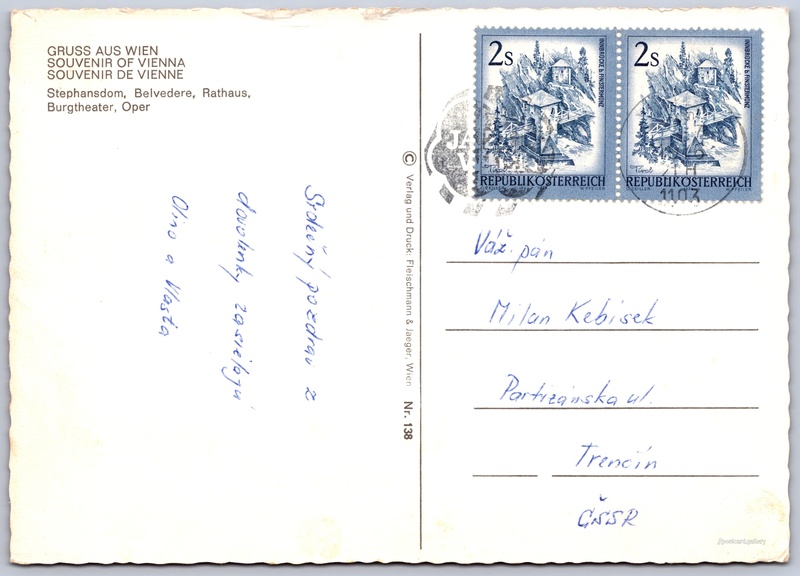 GRUSS AUS WIEN
SOUVENIR OF VIENNA
SOUVENIR DE VIENNE
Stephansdom, Belvedere, Rathaus,
Burgtheater, Oper
Srdečný pozdrav z
dovolenky zasielajú
Oľno a Vlasta
© Verlag und Druck: Fleischmann & Jaeger, Wien Nr. 138
2s
INNBRÜCKE B FINSTERMÜNZ
Tirol
REPUBLIK ÖSTERREICH
2s
INNBRÜCKE B FINSTERMÜNZ
Tirol
REPUBLIK ÖSTERREICH
1103
Váž. pán
Milan Kebisek
Partizánska ul.
Trenčín
ČSSR